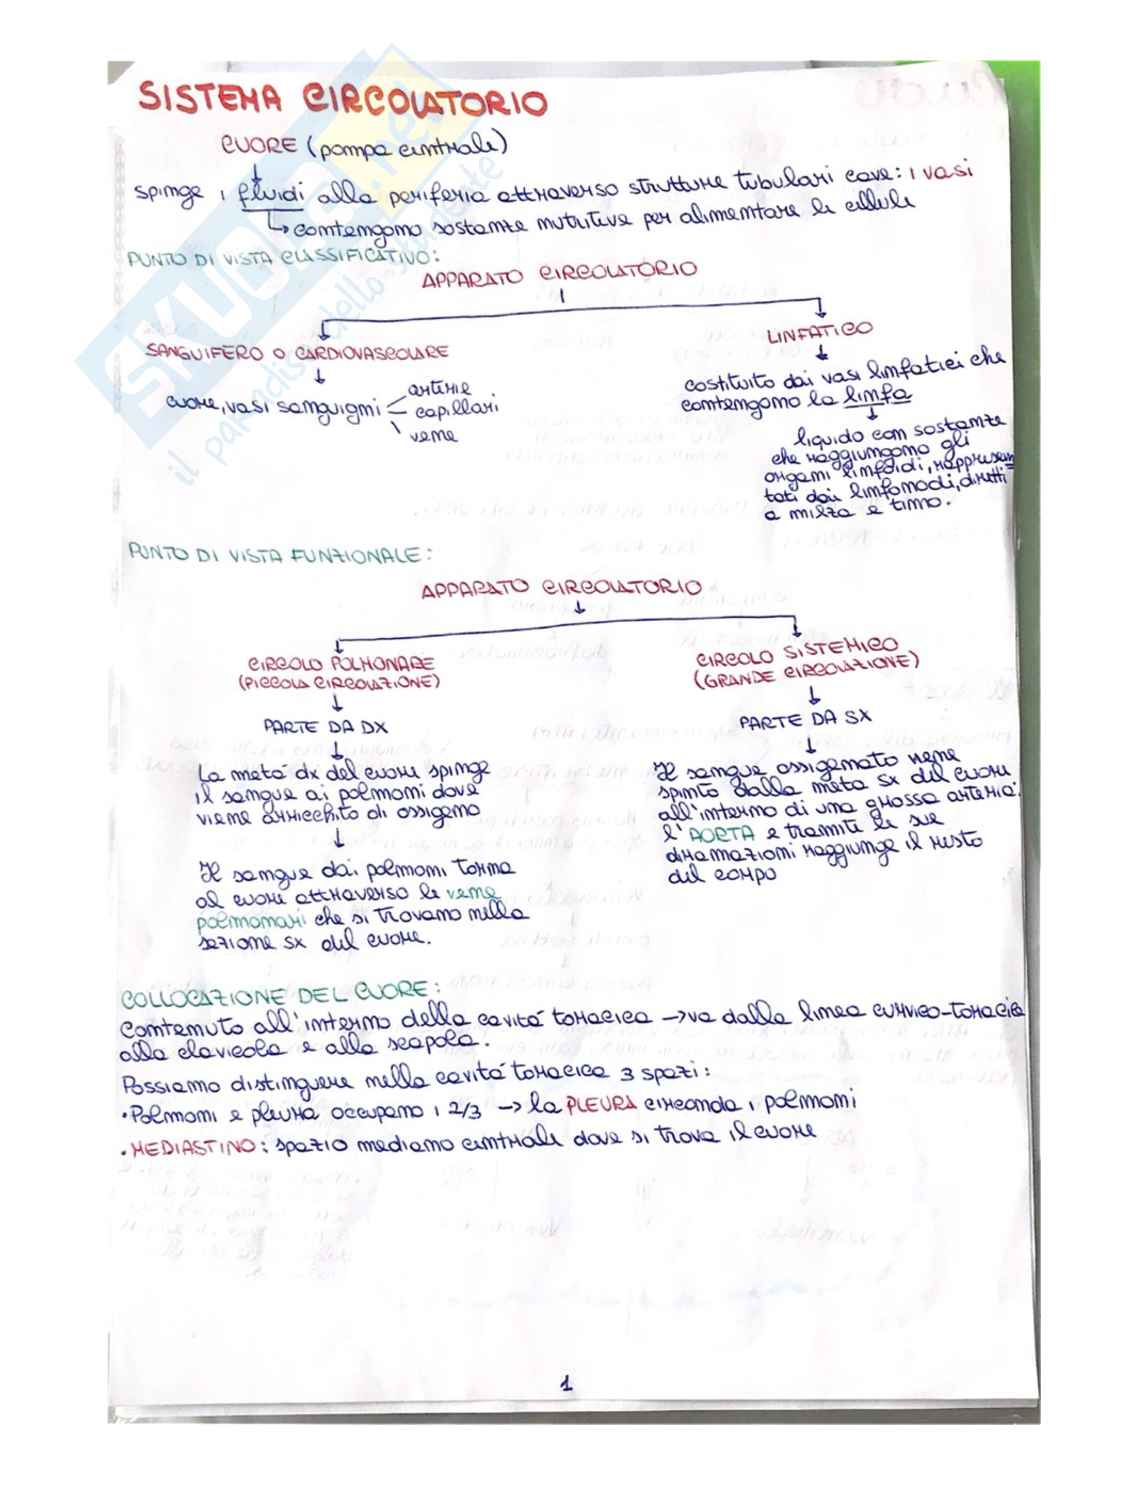 SISTEMA CIRCOLATORIO
CUORE (pompa centrale)
spinge i fluidi alla periferia attraverso strutture tubulari cave: i vasi
contengono sostanze nutritive per alimentare le cellule
PUNTO DI VISTA CLASSIFICATIVO:
APPARATO CIRCOLATORIO
SANGUIFERO O CARDIOVASCOLARE
cuore, vasi sanguigni
arterie
capillari
vene
LINFATICO
costituito dai vasi linfatici che
contengono la linfa
liquido con sostanze
che raggiungono gli
organi linfoidi, rappresen
tati dai linfonodi, dirutti
a milza e timo.
PUNTO DI VISTA FUNZIONALE:
APPARATO CIRCOLATORIO
CIRCOLO POLMONARE
(PICCOLA CIRCOLAZIONE)
PARTE DA DX
La metà dx del cuore spinge
il sangue ai polmoni dove
viene arricchito di ossigeno
Il sangue dai polmoni torna
al cuore attraverso le vene
polmonari che si trovano nella
sezione sx del cuore.
CIRCOLO SISTEMICO
(GRANDE CIRCOLAZIONE)
PARTE DA SX
Il sangue ossigenato viene
spinto dalla metà sx del cuore
all'interno di una grossa arteria:
l'AORTA e tramite le sue
diramazioni raggiunge il resto
del corpo
COLLOCAZIONE DEL CUORE:
Contenuto all'interno della cavità toracica → va dalla linea cervico-toracica
alla clavicola e alla scapola.
Possiamo distinguere nella cavità toracica 3 spazi:
• Polmoni e pleura occupano i 2/3 → la PLEURA circonda i polmoni
• MEDIASTINO: spazio mediano centrale dove si trova il cuore
1
SKUOLA.net
il paradiso dello studente